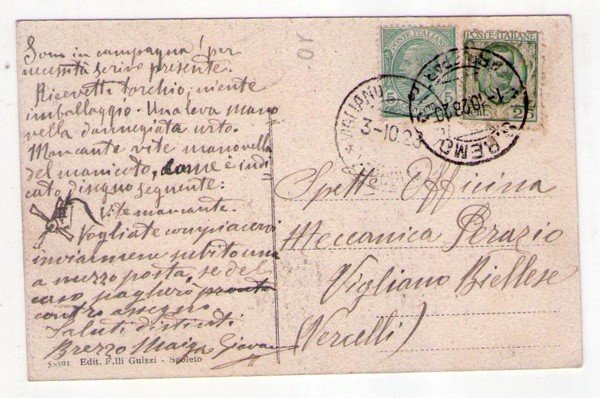 Sono in campagna! per
necessità scrivo presente.
Ricevetti torchio, niente
imballaggio. Una leva mano
vella danneggiata urto.
Mancante vite manovella
del manicoto, come è indi
cato disegno seguente:
Vite mancante.
Vogliate compiacervi
inviarmene subito una
a mezzo posta, se del
caso, pagherò pronto
contro assegno
Saluti distinti
Brezzo Maiga Giovanni
Edit. F.lli Guizzi - Spoleto
POSTE ITALIANE
POSTE ITALIANE
3-10.23
Spett. Officina
Meccanica Perazio
Vigliano Biellese
(Vercelli)